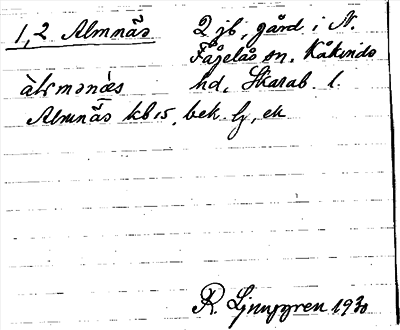 1,2 Almnäs 2 jb, gård i N.
Fågelås sn, Kåkinds
àlmənä̀s hd, Skarab. l.
Almnäs kb 15, bek. lj, ek
R. Ljunggren 1930